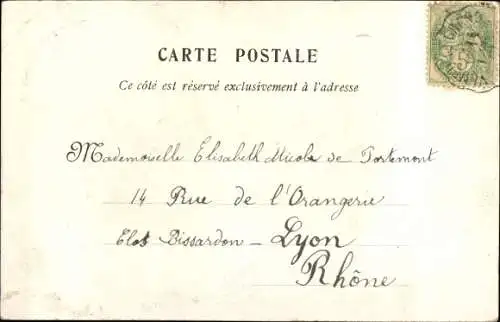 CARTE POSTALE
Ce côté est réservé exclusivement à l'adresse
Mademoiselle Elisabeth Nicole de Tortemont
14 Rue de l'Orangerie
Clos Bissardon - Lyon
Rhône